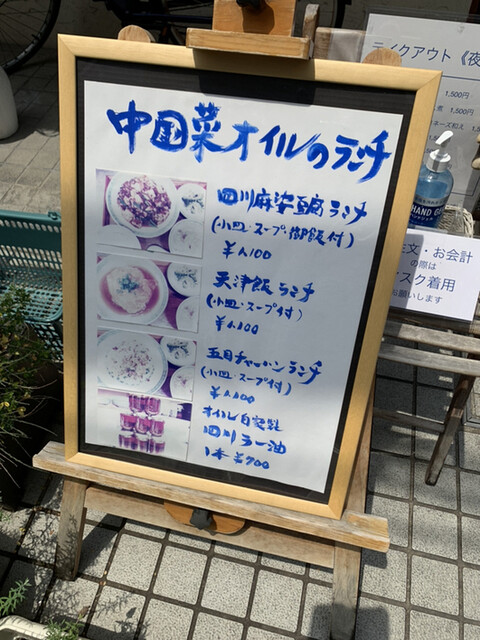 中国菜オイルのランチ
四川麻婆豆腐ランチ
(小皿・スープ・御飯付)
¥1,100
天津飯ランチ
(小皿・スープ付)
¥1,100
五目チャーハンランチ
(小皿・スープ付)
¥1,100
オイル自家製
四川ラー油
1本¥700
テイクアウト《夜
1,500円
1,500円
1,500円
HAND
文・お会計
の際は
スク着用
お願いします